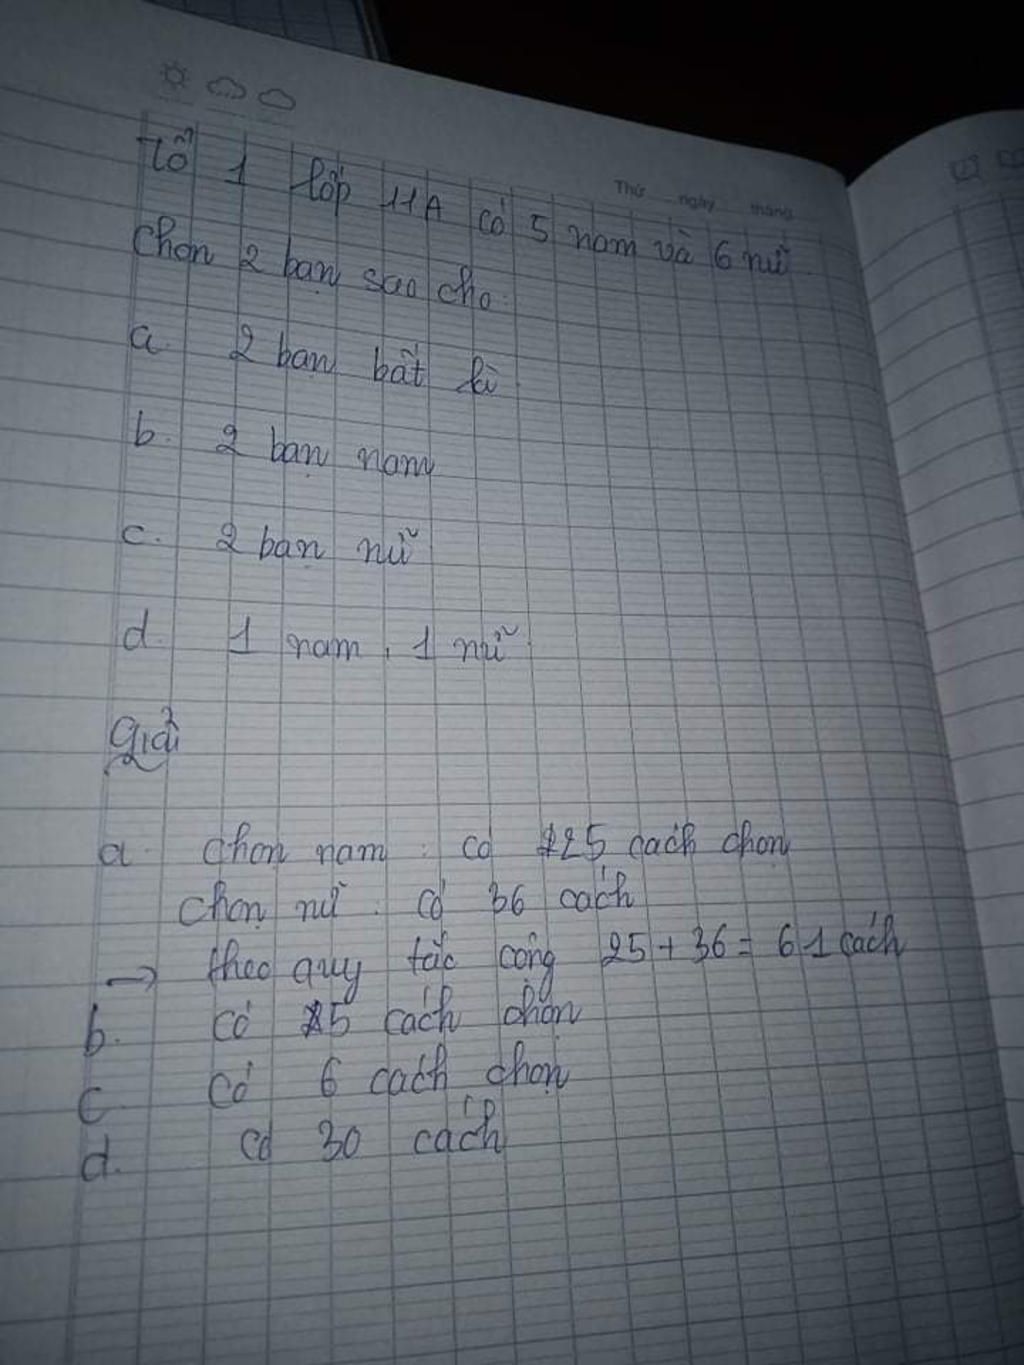 Tổ 1 lớp 11A có 5 nam và 6 nữ.
Thứ ngày tháng
Chọn 2 bạn sao cho.
a. 2 bạn bất kì.
b. 2 bạn nam
c. 2 bạn nữ
d. 1 nam, 1 nữ.
Giải
a. Chọn nam: có 25 cách chọn
Chọn nữ: có 36 cách
→ theo quy tắc cộng 25 + 36 = 61 cách
b. có 5 cách chọn
c. có 6 cách chọn
d. có 30 cách